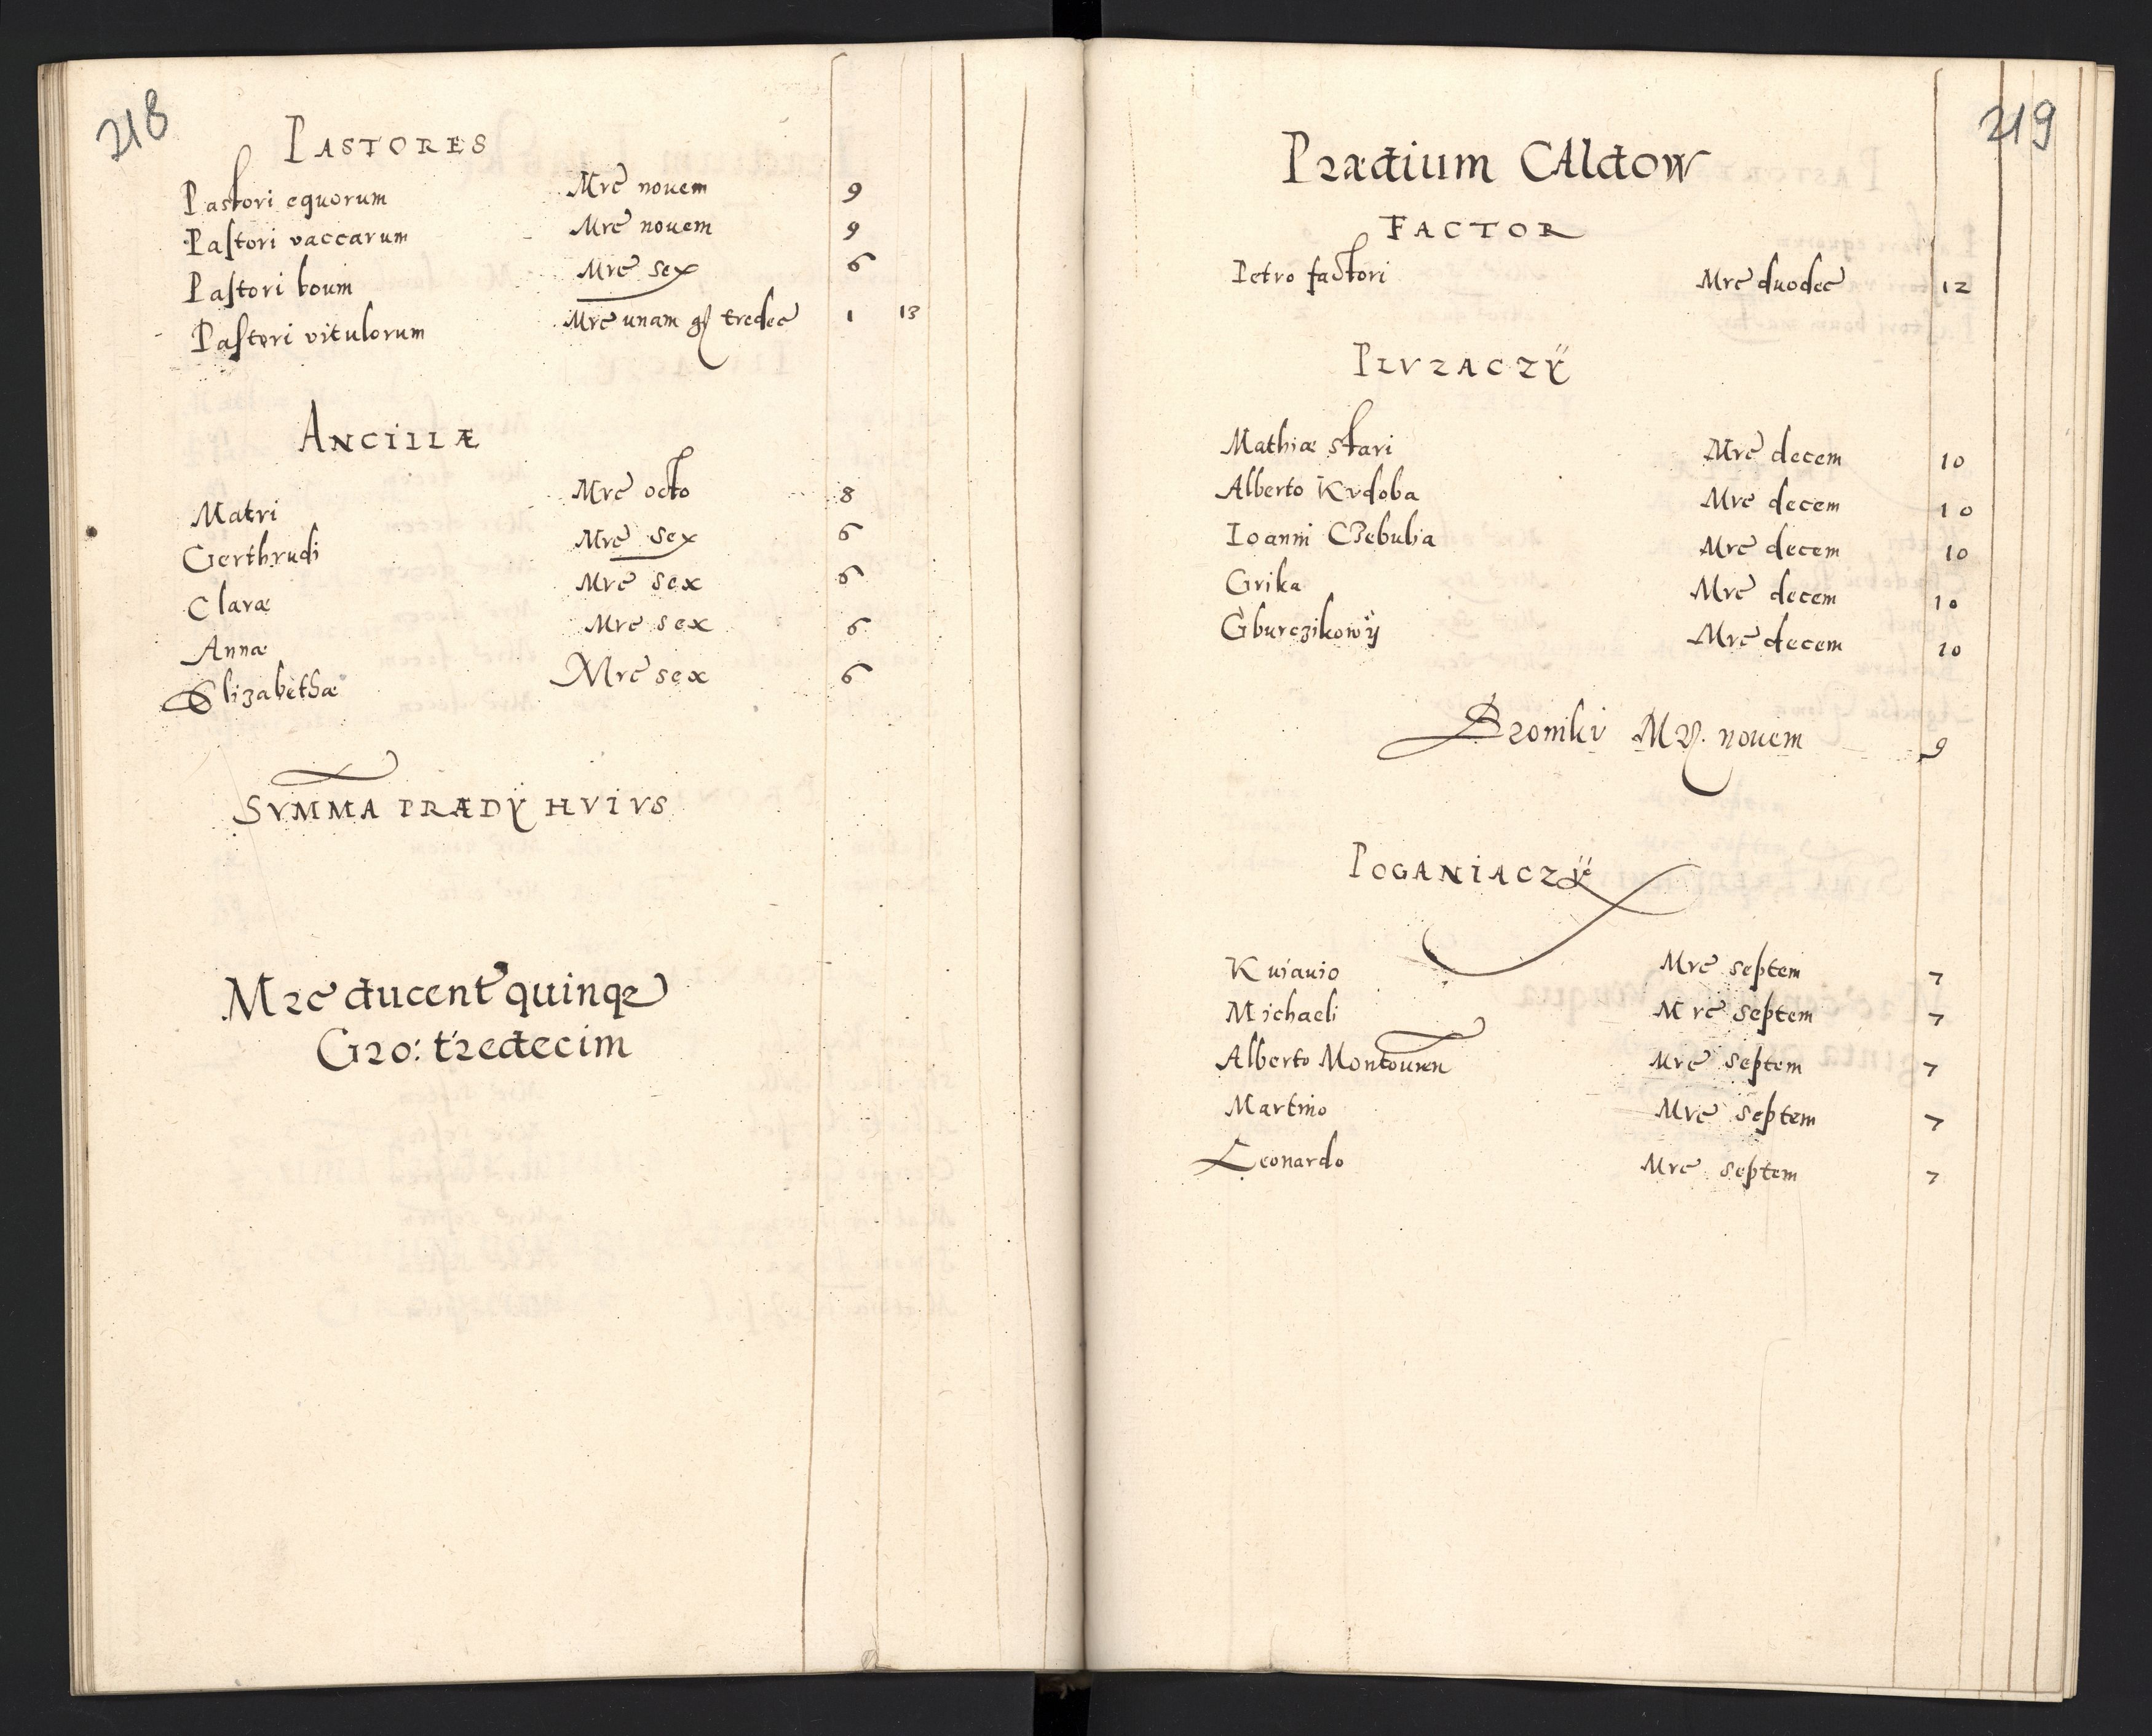 218
PASTORES
Pastori equorum Mrc novem 9
Pastori vaccarum Mrc novem 9
Pastori boum Mrc sex 6
Pastori vitulorum Mrc unam gr tredec 1 13
ANCILLÆ
Matri Mrc octo 8
Gerthrudi Mrc sex 6
Claræ Mrc sex 6
Annæ Mrc sex 6
Elizabethæ Mrc sex 6
SVMMA PRÆDŸ HVIVS
Mrc ducent quinqz
Gro: tredecim
219
Prædium CAldow
FACTOR
Petro factori Mrc duodec 12
PLVZACZŸ
Mathiæ stari Mrc decem 10
Alberto Kvdoba Mrc decem 10
Ioanni Czebulia Mrc decem 10
Grika Mrc decem 10
Gburczikowÿ Mrc decem 10
Bronikv Mr. novem 9
POGANIACZŸ
Kuiauio Mrc septem 7
Michaeli Mrc septem 7
Alberto Mrc septem 7
Martino Mrc septem 7
Leonardo Mrc septem 7